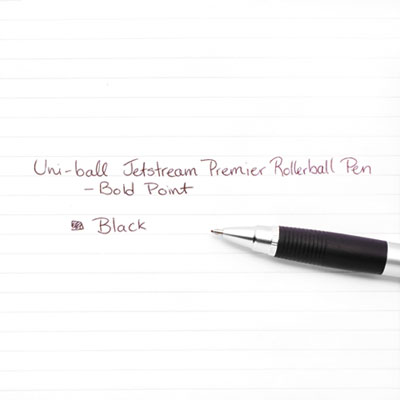 Uni-ball Jetstream Premier Rollerball Pen
- Bold Point
Black